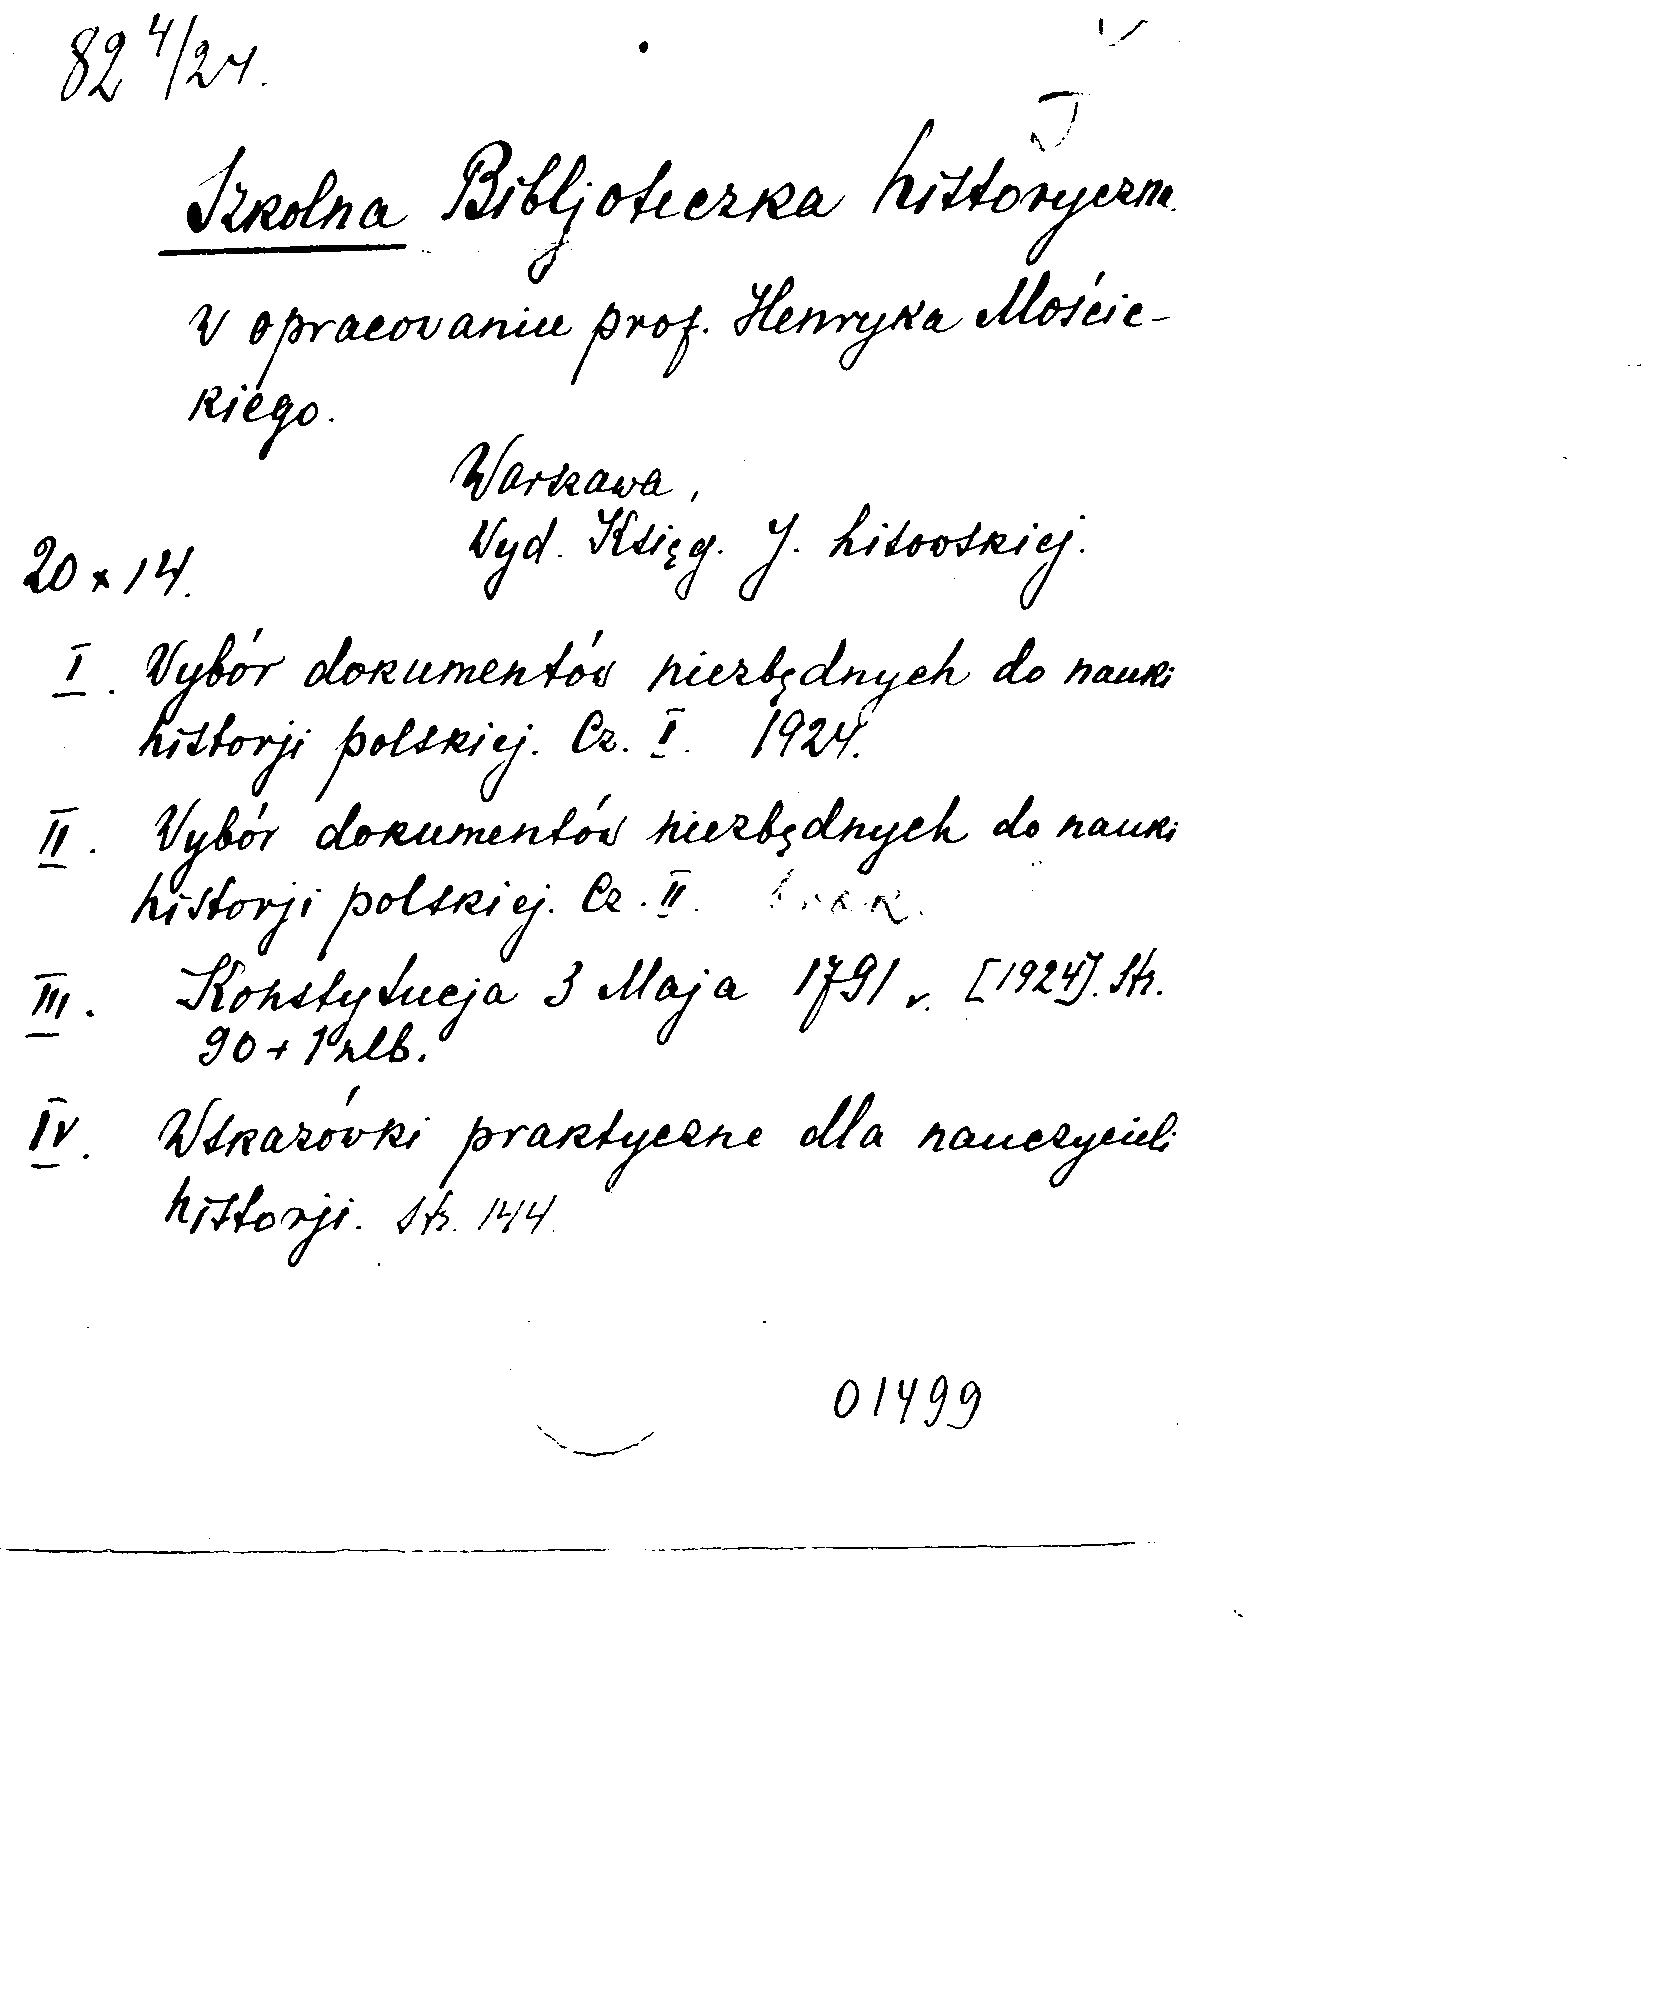 82 4/24.
Szkolna Bibljoteczka historyczna
w opracowaniu prof. Henryka Mościc-
kiego.
Warszawa,
Wyd. Księg. J. Lisowskiej.
20 x 14.
I. Wybór dokumentów niezbędnych do nauki
historji polskiej. Cz. I. 1924.
II. Wybór dokumentów niezbędnych do nauki
historji polskiej. Cz. II. brak.
III. Konstytucja 3 Maja 1791 r. [1924]. Str.
90 + 1 nlb.
IV. Wskazówki praktyczne dla nauczycieli
historji. Str. 144.
01499